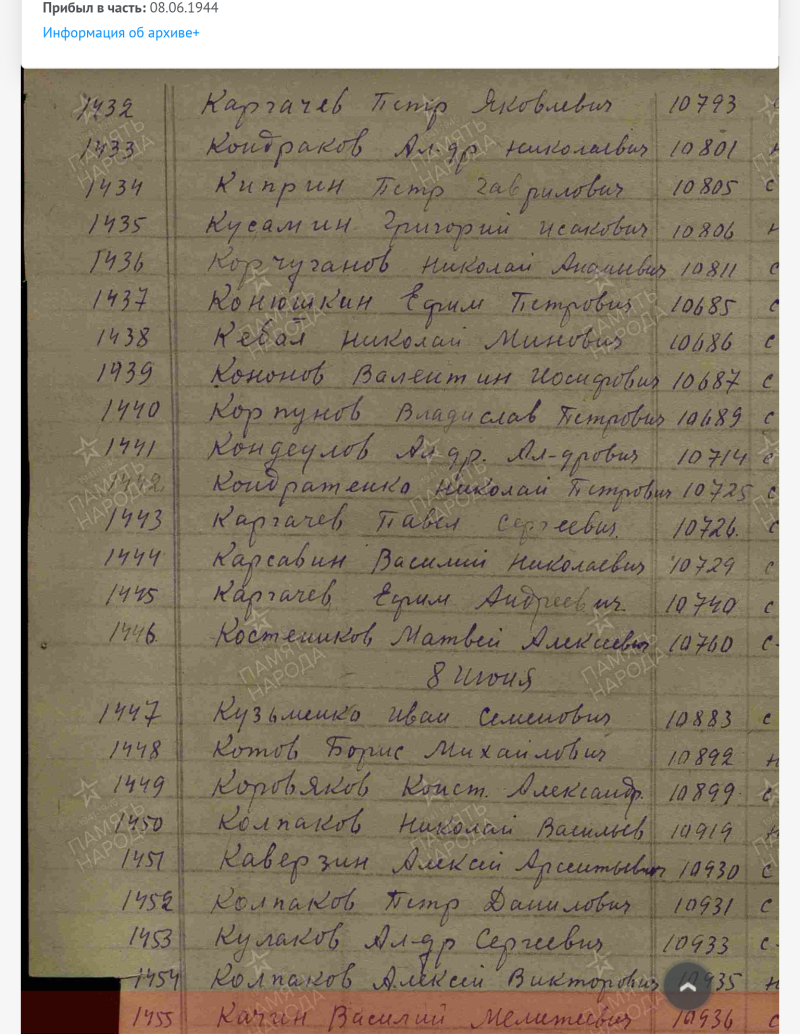 Прибыл в часть: 08.06.1944
Информация об архиве+
1432 Каргачев Петр Яковлевич 10793 с
1433 Кондраков Ал-др Николаевич 10801 н
1434 Киприн Петр Гаврилович 10805 с
1435 Кусамин Григорий Исакович 10806 н
1436 Корчуганов Николай 10811 с
1437 Конюшкин Ефим Петрович 10685 с
1438 Кебал Николай Минович 10686 с
1939 Кононов Валентин Иосифович 10687 с
1440 Корпунов Владислав Петрович 10689 с
1441 Кондеулов Ал-др. Ал-дрович 10714 с
1442 Кондратенко Николай Петрович 10725 с
1443 Каргачев Павел Сергеевич. 10726. с
1444 Карсавин Василий Николаевич 10729 с
1445 Каргачев Ефим Андреевич. 10740 с
1446. Костеников Матвей Алексеевич 10760 с
8 Июня
1447 Кузьменко Иван Семенович 10883 с
1448 Котов Борис Михайлович 10892 н
1449 Коровяков Конст. Александр. 10899 с
1450 Колпаков Николай Васильев 10919 н
1451 Каверзин Алексей Арсентьевич 10930 с
1452 Колпаков Петр Данилович 10931 с
1453 Кулаков Ал-др Сергеевич 10933 с
1454 Колпаков Алексей Викторович 935 н
1455 Качин Василий Мелитеевич 10936 с
ПАМЯТЬ НАРОДА